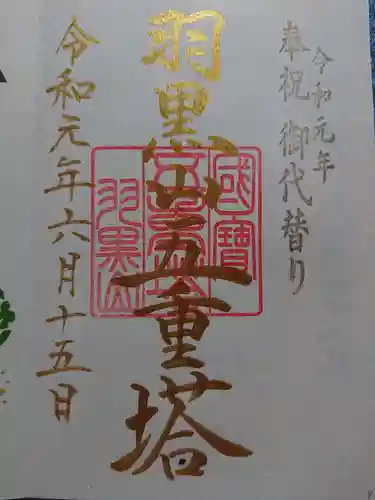 奉祝 御代替り
令和元年
羽黒山五重塔
國寶
五重塔
羽黒山
令和元年六月十五日